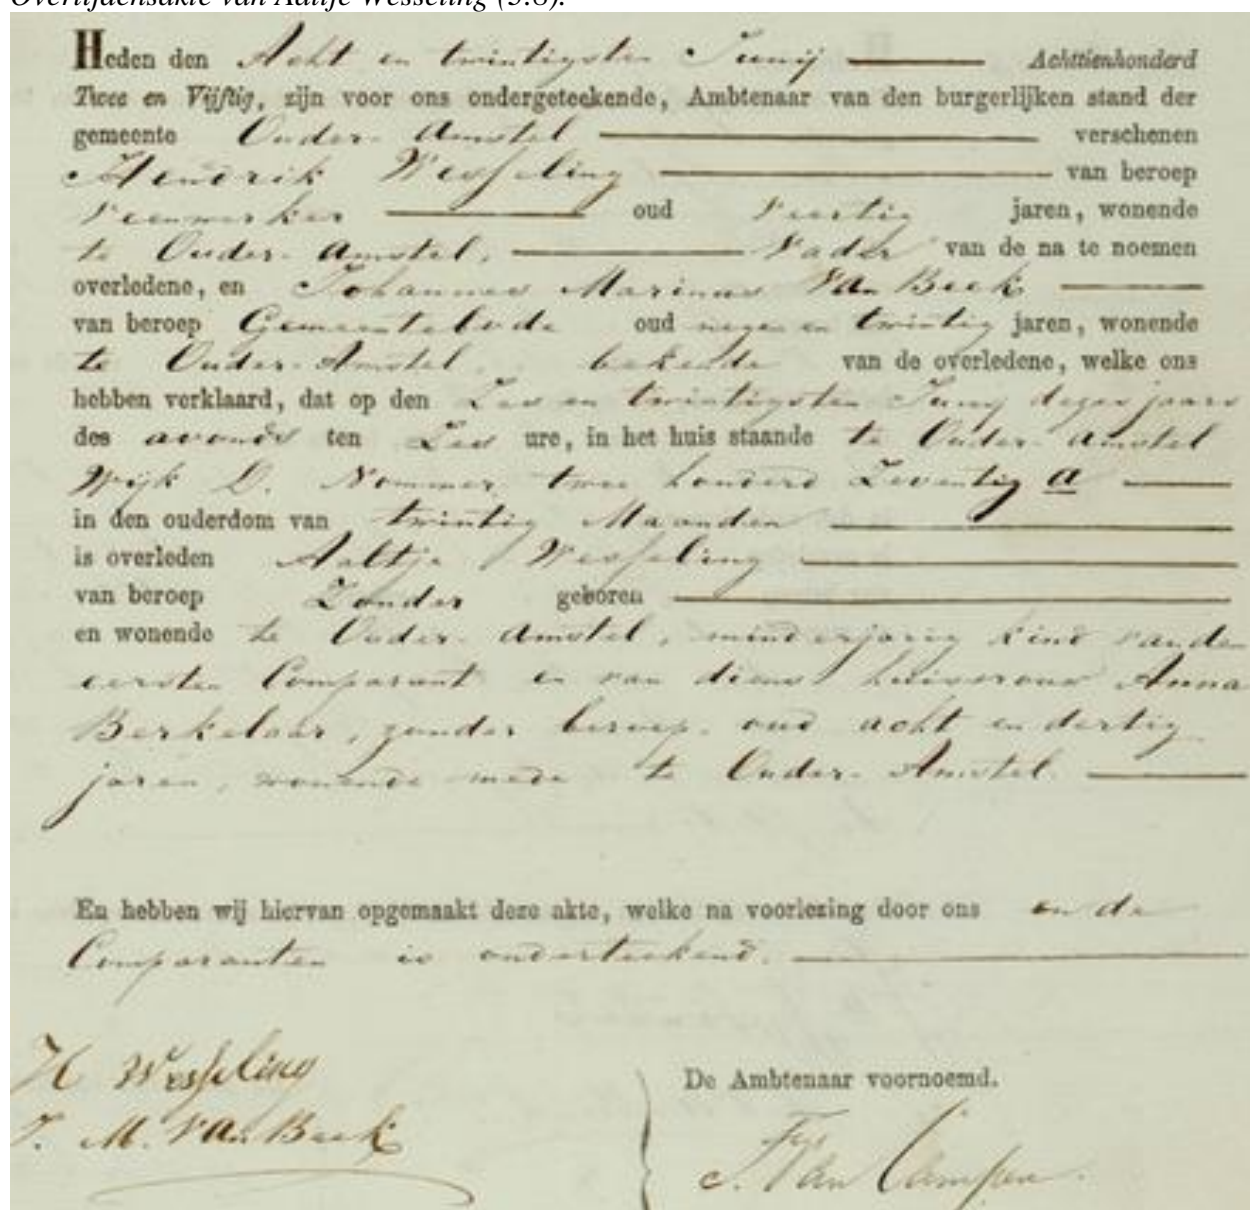 Overlijdensakte van Aaltje Wesseling (5.8).
Heden den Acht en twintigsten Junij Achttienhonderd
Twee en Vijftig, zijn voor ons ondergeteekende, Ambtenaar van den burgerlijken stand der
gemeente Ouder-Amstel verschenen
Hendrik Wesseling van beroep
Veenwerker oud Veertig jaren, wonende
te Ouder-Amstel, Vader van de na te noemen
overledene, en Johannes Marinus Van Beek
van beroep Gemeentebode oud negen en twintig jaren, wonende
te Ouder-Amstel, bekende van de overledene, welke ons
hebben verklaard, dat op den Zes en twintigsten Junij dezes jaars
des avonds ten Zes ure, in het huis staande te Ouder-Amstel
Wijk D. Nommer twee honderd Zeventig a
in den ouderdom van twintig Maanden
is overleden Aaltje Wesseling
van beroep Zonder geboren
en wonende te Ouder-Amstel, minderjarig kind van den
eersten Comparant en van diens huisvrouw Anna
Berkelaar, zonder beroep, oud acht en dertig
jaren, wonende mede te Ouder-Amstel.
En hebben wij hiervan opgemaakt deze akte, welke na voorlezing door ons en de
Comparanten is onderteekend.
H Wesseling
J. M. Van Beek
De Ambtenaar voornoemd.
J. Van Campen